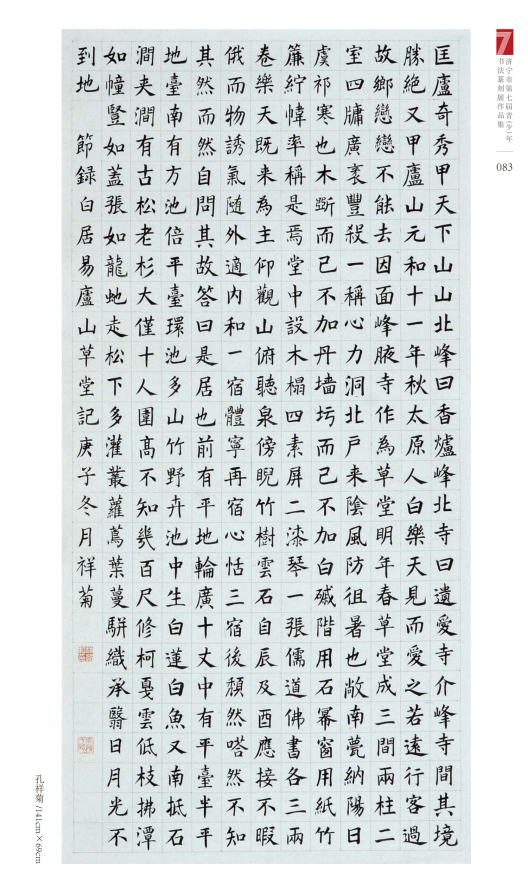 7
济宁市第七届青（少）年
书法篆刻展作品集
083
匡廬奇秀甲天下山山北峰曰香爐峰北寺曰遺愛寺介峰寺間其境
勝絶又甲廬山元和十一年秋太原人白樂天見而愛之若遠行客過
故鄉戀戀不能去因面峰腋寺作為草堂明年春草堂成三間兩柱二
室四牖廣袤豐殺一稱心力洞北戶来陰風防徂暑也敞南甍納陽日
虞祁寒也木斲而已不加丹墻圬而已不加白磩階用石冪窗用紙竹
簾紵幃率稱是焉堂中設木榻四素屏二漆琴一張儒道佛書各三兩
卷樂天既来為主仰觀山俯聽泉傍睨竹樹雲石自辰及酉應接不暇
俄而物誘氣随外適内和一宿體寧再宿心恬三宿後頹然嗒然不知
其然而然自問其故答曰是居也前有平地輪廣十丈中有平臺半平
地臺南有方池倍平臺環池多山竹野卉池中生白蓮白魚又南抵石
澗夾澗有古松老杉大僅十人圍高不知幾百尺修柯戛雲低枝拂潭
如幢豎如蓋張如龍虵走松下多灌叢蘿蔦葉蔓駢織承翳日月光不
到地 節録白居易廬山草堂記庚子冬月祥菊
孔祥菊/141cm×69cm